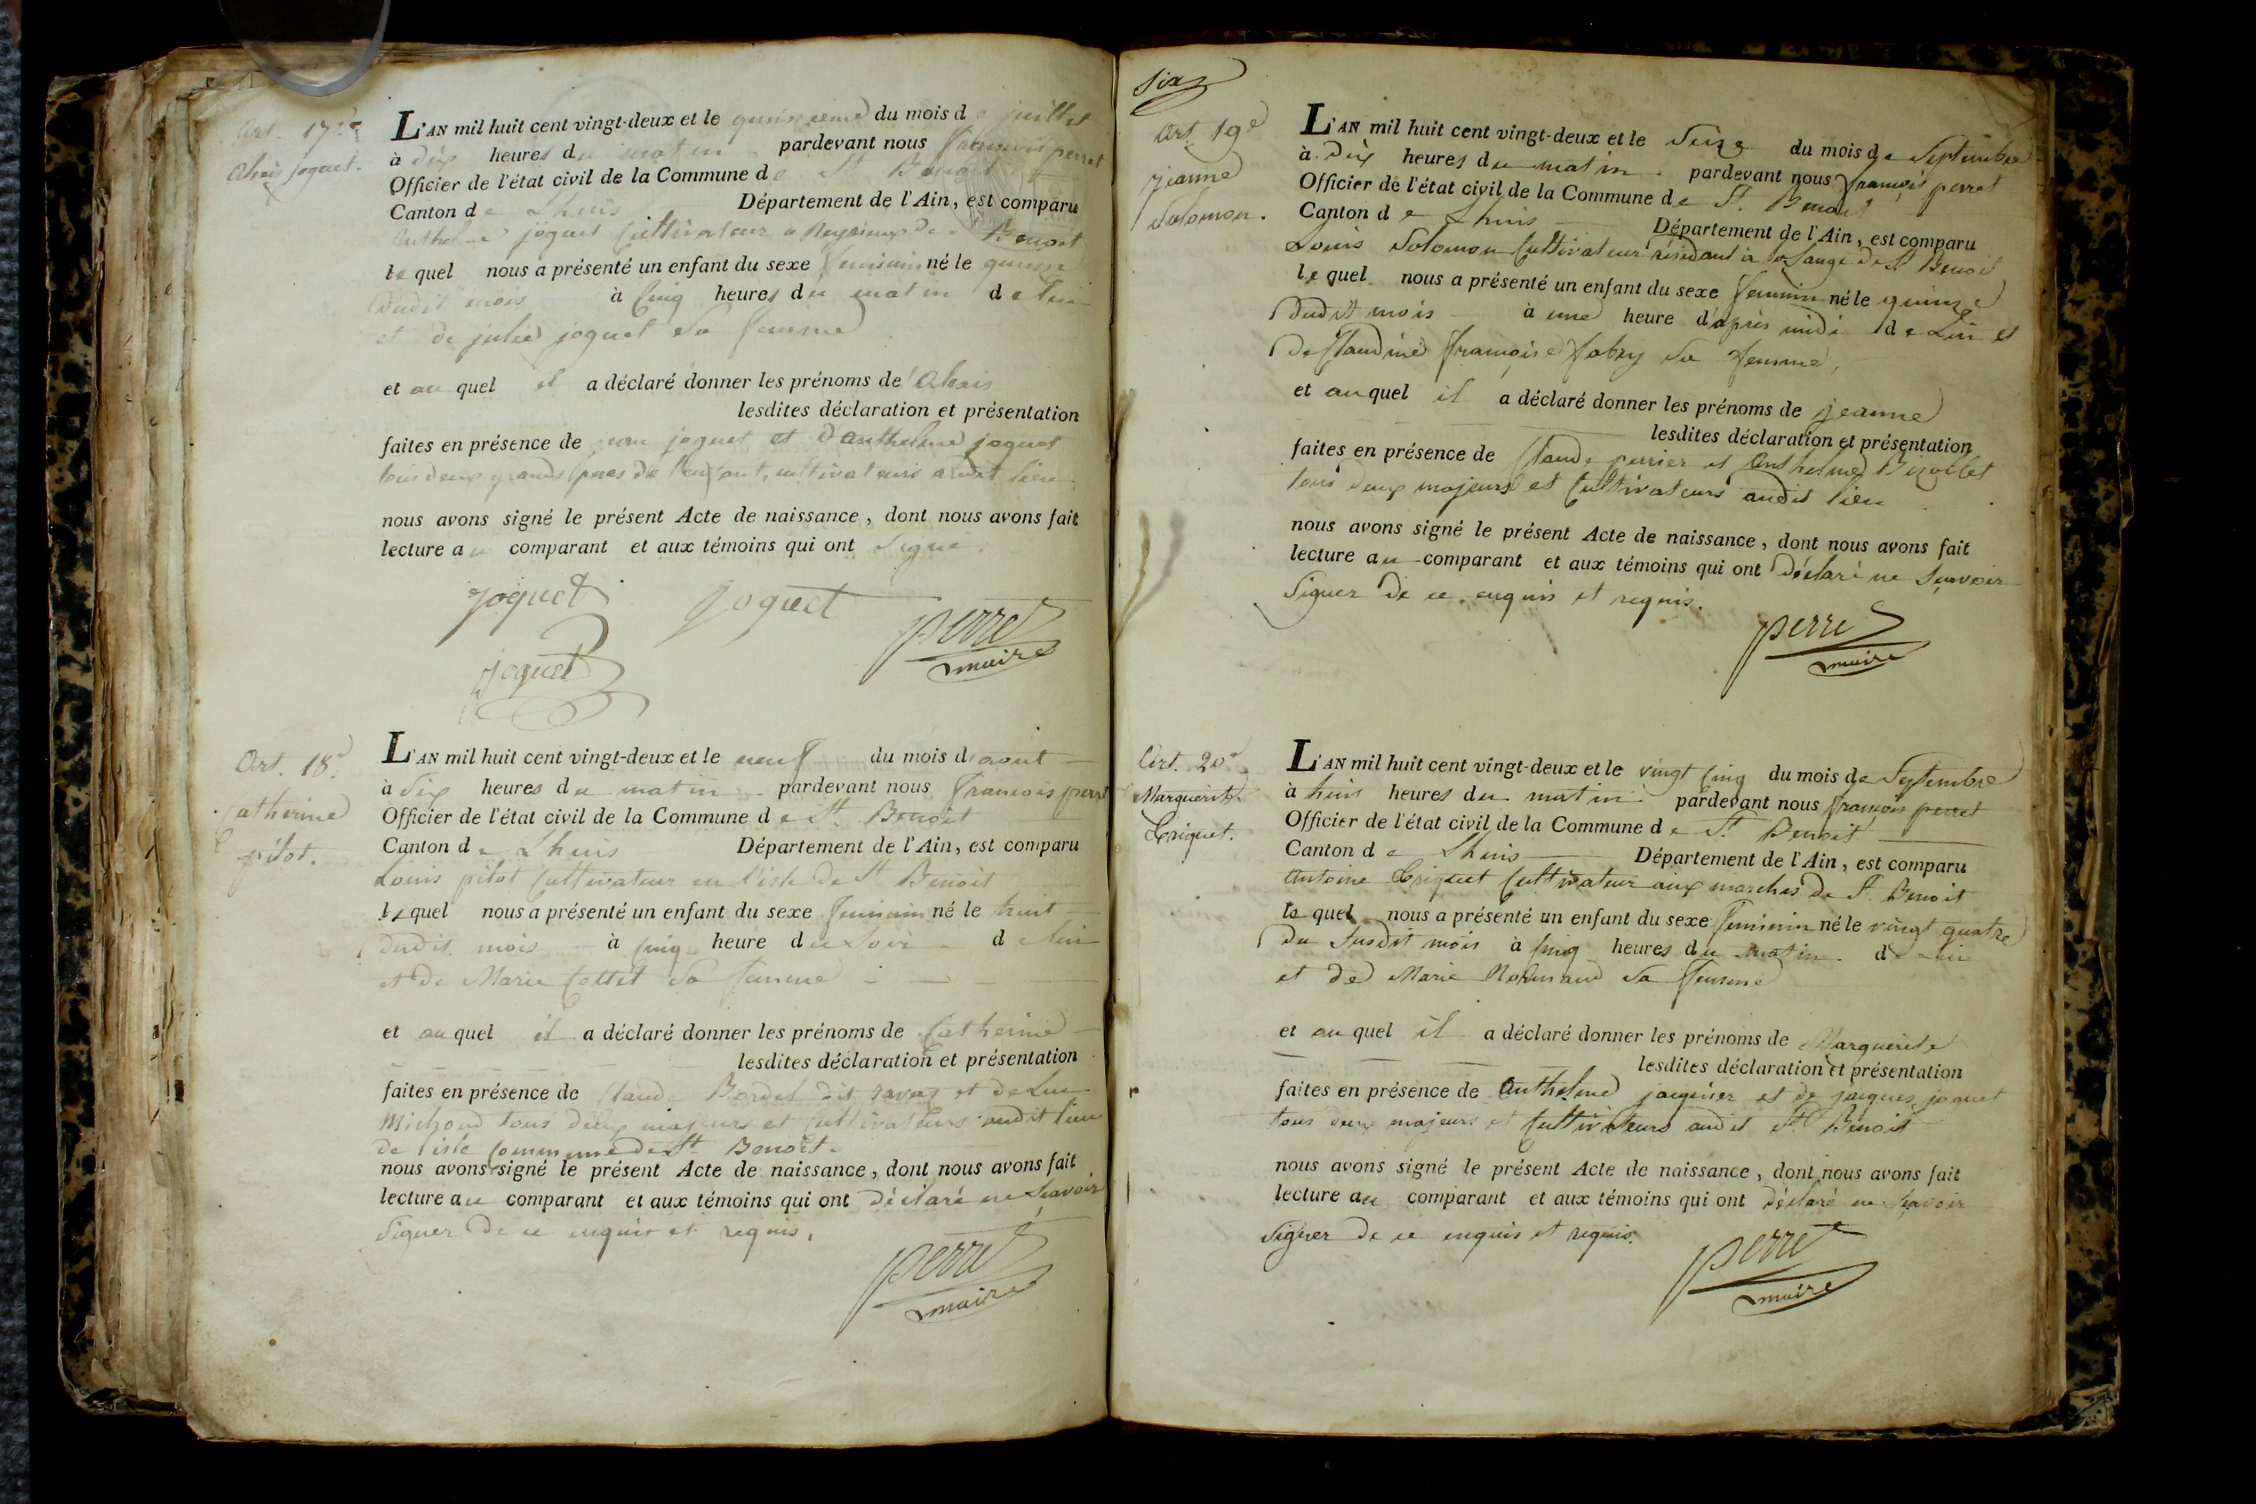 Art. 17.e
Alexis joquet.
L'AN mil huit cent vingt-deux et le quinzieme du mois de juillet
à dix heures du matin pardevant nous françois perret
Officier de l'état civil de la Commune de St Benoit
Canton de Lhuis Département de l'Ain, est comparu
Anthelme joquet Cultivateur a de Benoit
lequel nous a présenté un enfant du sexe feminin né le quinze
dudit mois à Cinq heures du matin de lui
et de julie joquet sa femme
et auquel il a déclaré donner les prénoms de
lesdites déclaration et présentation
faites en présence de joquet et d'anthelme joquet
tous deux grands peres de l'enfant, cultivateurs audit lieu
nous avons signé le présent Acte de naissance, dont nous avons fait
lecture au comparant et aux témoins qui ont signé.
joquet joquet perret
maire
joquet
Art. 18e
Catherine
pitot.
L'AN mil huit cent vingt-deux et le neuf du mois d'aout
à dix heures du matin pardevant nous françois perret
Officier de l'état civil de la Commune de St. Benoit
Canton de Lhuis Département de l'Ain, est comparu
Louis pitot Cultivateur en l'isle de St Benoit
lequel nous a présenté un enfant du sexe feminin né le huit
dudit mois à Cinq heure du soir de lui
et de Marie Cottet sa femme
et auquel il a déclaré donner les prénoms de Catherine
lesdites déclaration et présentation
faites en présence de Claude Bordel dit et de Luc
Michoud tous deux majeurs et Cultivateurs audit lieu
de l'isle Commune de St. Benoit.
nous avons signé le présent Acte de naissance, dont nous avons fait
lecture au comparant et aux témoins qui ont déclaré ne sçavoir
signer de ce enquis et requis.
perret
maire
Six
Art. 19e
jeanne
Solomon.
L'AN mil huit cent vingt-deux et le seize du mois de Septembre
à dix heures du matin pardevant nous françois perret
Officier de l'état civil de la Commune de St. Benoit
Canton de Lhuis Département de l'Ain, est comparu
Louis Solomon Cultivateur résidant à de St Benoit
lequel nous a présenté un enfant du sexe feminin né le quinze
dudit mois à une heure d'après midi de Lui et
de Claudine françoise fabry sa femme,
et auquel il a déclaré donner les prénoms de jeanne
lesdites déclaration et présentation
faites en présence de Claude perrier et Anthelme Bizollet
tous deux majeurs et Cultivateurs audit lieu
nous avons signé le présent Acte de naissance, dont nous avons fait
lecture au comparant et aux témoins qui ont déclaré ne sçavoir
signer de ce enquis et requis.
perret
maire
Art. 20e
Marguerite
Criquet.
L'AN mil huit cent vingt-deux et le vingt Cinq du mois de Septembre
à huit heures du matin pardevant nous françois perret
Officier de l'état civil de la Commune de St. Benoit
Canton de Lhuis Département de l'Ain, est comparu
Antoine Criquet Cultivateur aux marches de St. Benoit
lequel nous a présenté un enfant du sexe feminin né le vingt quatre
du susdit mois à Cinq heures du matin de lui
et de Marie Normand sa femme
et auquel il a déclaré donner les prénoms de Marguerite
lesdites déclaration et présentation
faites en présence de Anthelme et de jacques joquet
tous deux majeurs et Cultivateurs audit St. Benoit
nous avons signé le présent Acte de naissance, dont nous avons fait
lecture au comparant et aux témoins qui ont déclaré ne sçavoir
signer de ce enquis et requis.
perret
maire